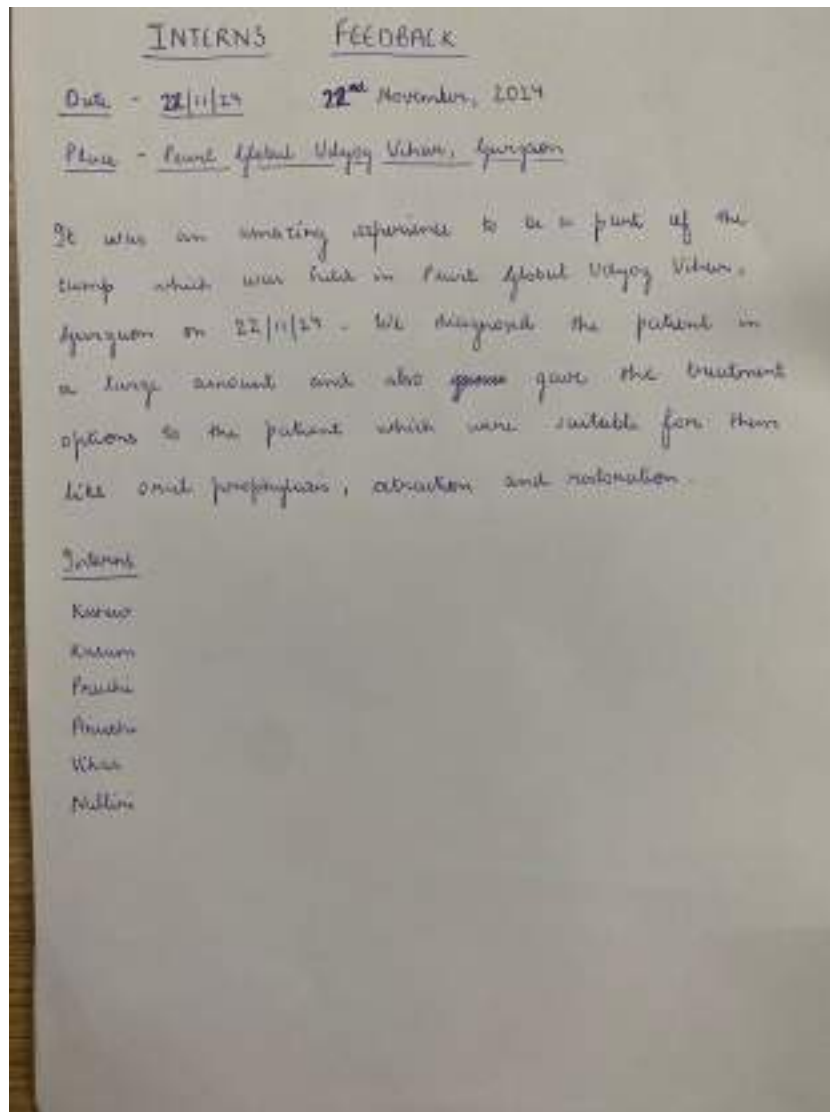 INTERNS FEEDBACK
Date - 22/11/24 22nd November, 2024
Place - Pearl Global Udyog Vihar, Gurgaon
It was an amazing experience to be a part of the
camp which was held in Pearl Global Udyog Vihar,
Gurgaon on 22/11/24. We diagnosed the patient in
a large amount and also gave the treatment
options to the patient which were suitable for them
like oral prophylaxis, extraction and restoration.
Interns
Kusum
Prachi